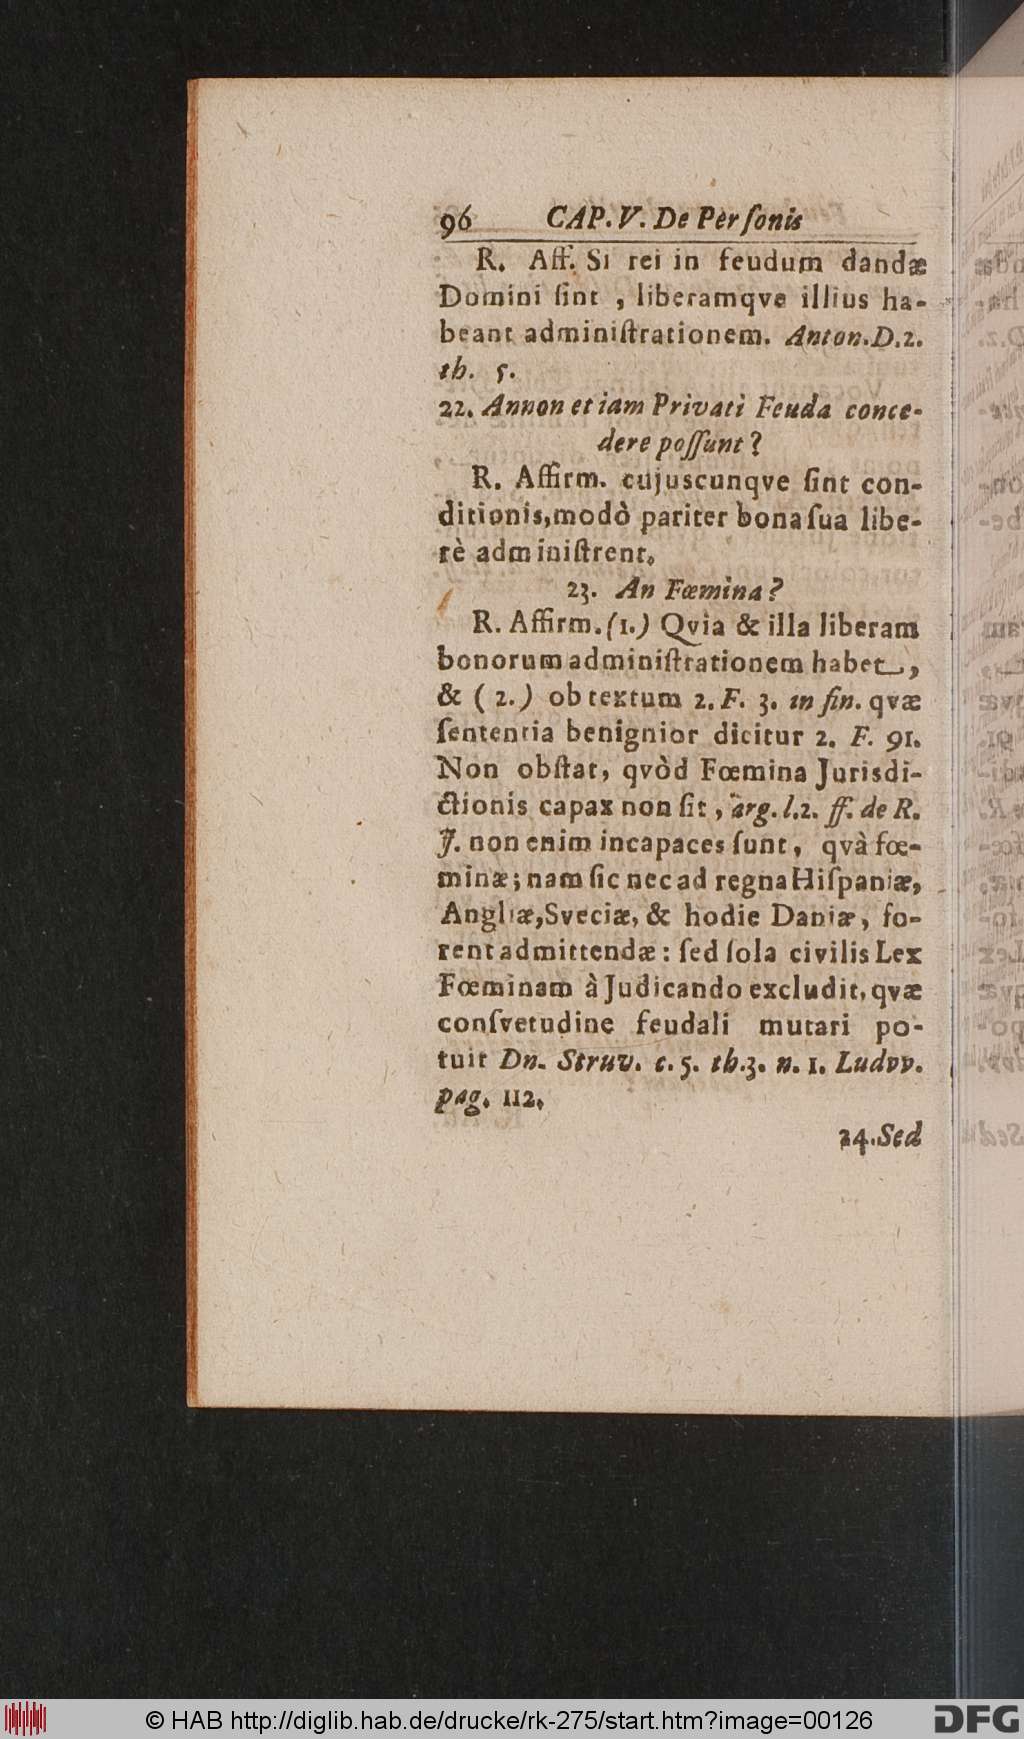 96 CAP. V. De Perſonis
R. Aff. Si rei in feudum dandæ
Domini ſint, liberamqve illius ha-
beant adminiſtrationem. Anton. D. 2.
th. 5.
22. Annon etiam Privati Feuda conce-
dere poſſunt?
R. Affirm. cujuscunqve ſint con-
ditionis, modò pariter bona ſua libe-
rè adminiſtrent.
23. An Fœmina?
R. Affirm. (1.) Qvia & illa liberam
bonorum adminiſtrationem habet,
& (2.) ob textum 2. F. 3. in fin. qvæ
ſententia benignior dicitur 2. F. 91.
Non obſtat, qvòd Fœmina Jurisdi-
ctionis capax non ſit, arg. l. 2. ff. de R.
J. non enim incapaces ſunt, qvà fœ-
minæ; nam ſic nec ad regna Hiſpaniæ,
Angliæ, Sveciæ, & hodie Daniæ, fo-
rent admittendæ: ſed ſola civilis Lex
Fœminam à Judicando excludit, qvæ
conſvetudine feudali mutari po-
tuit Dn. Struv. c. 5. th. 3. n. 1. Ludvv.
pag. 112.
24. Sed
© HAB http://diglib.hab.de/drucke/rk-275/start.htm?image=00126
DFG